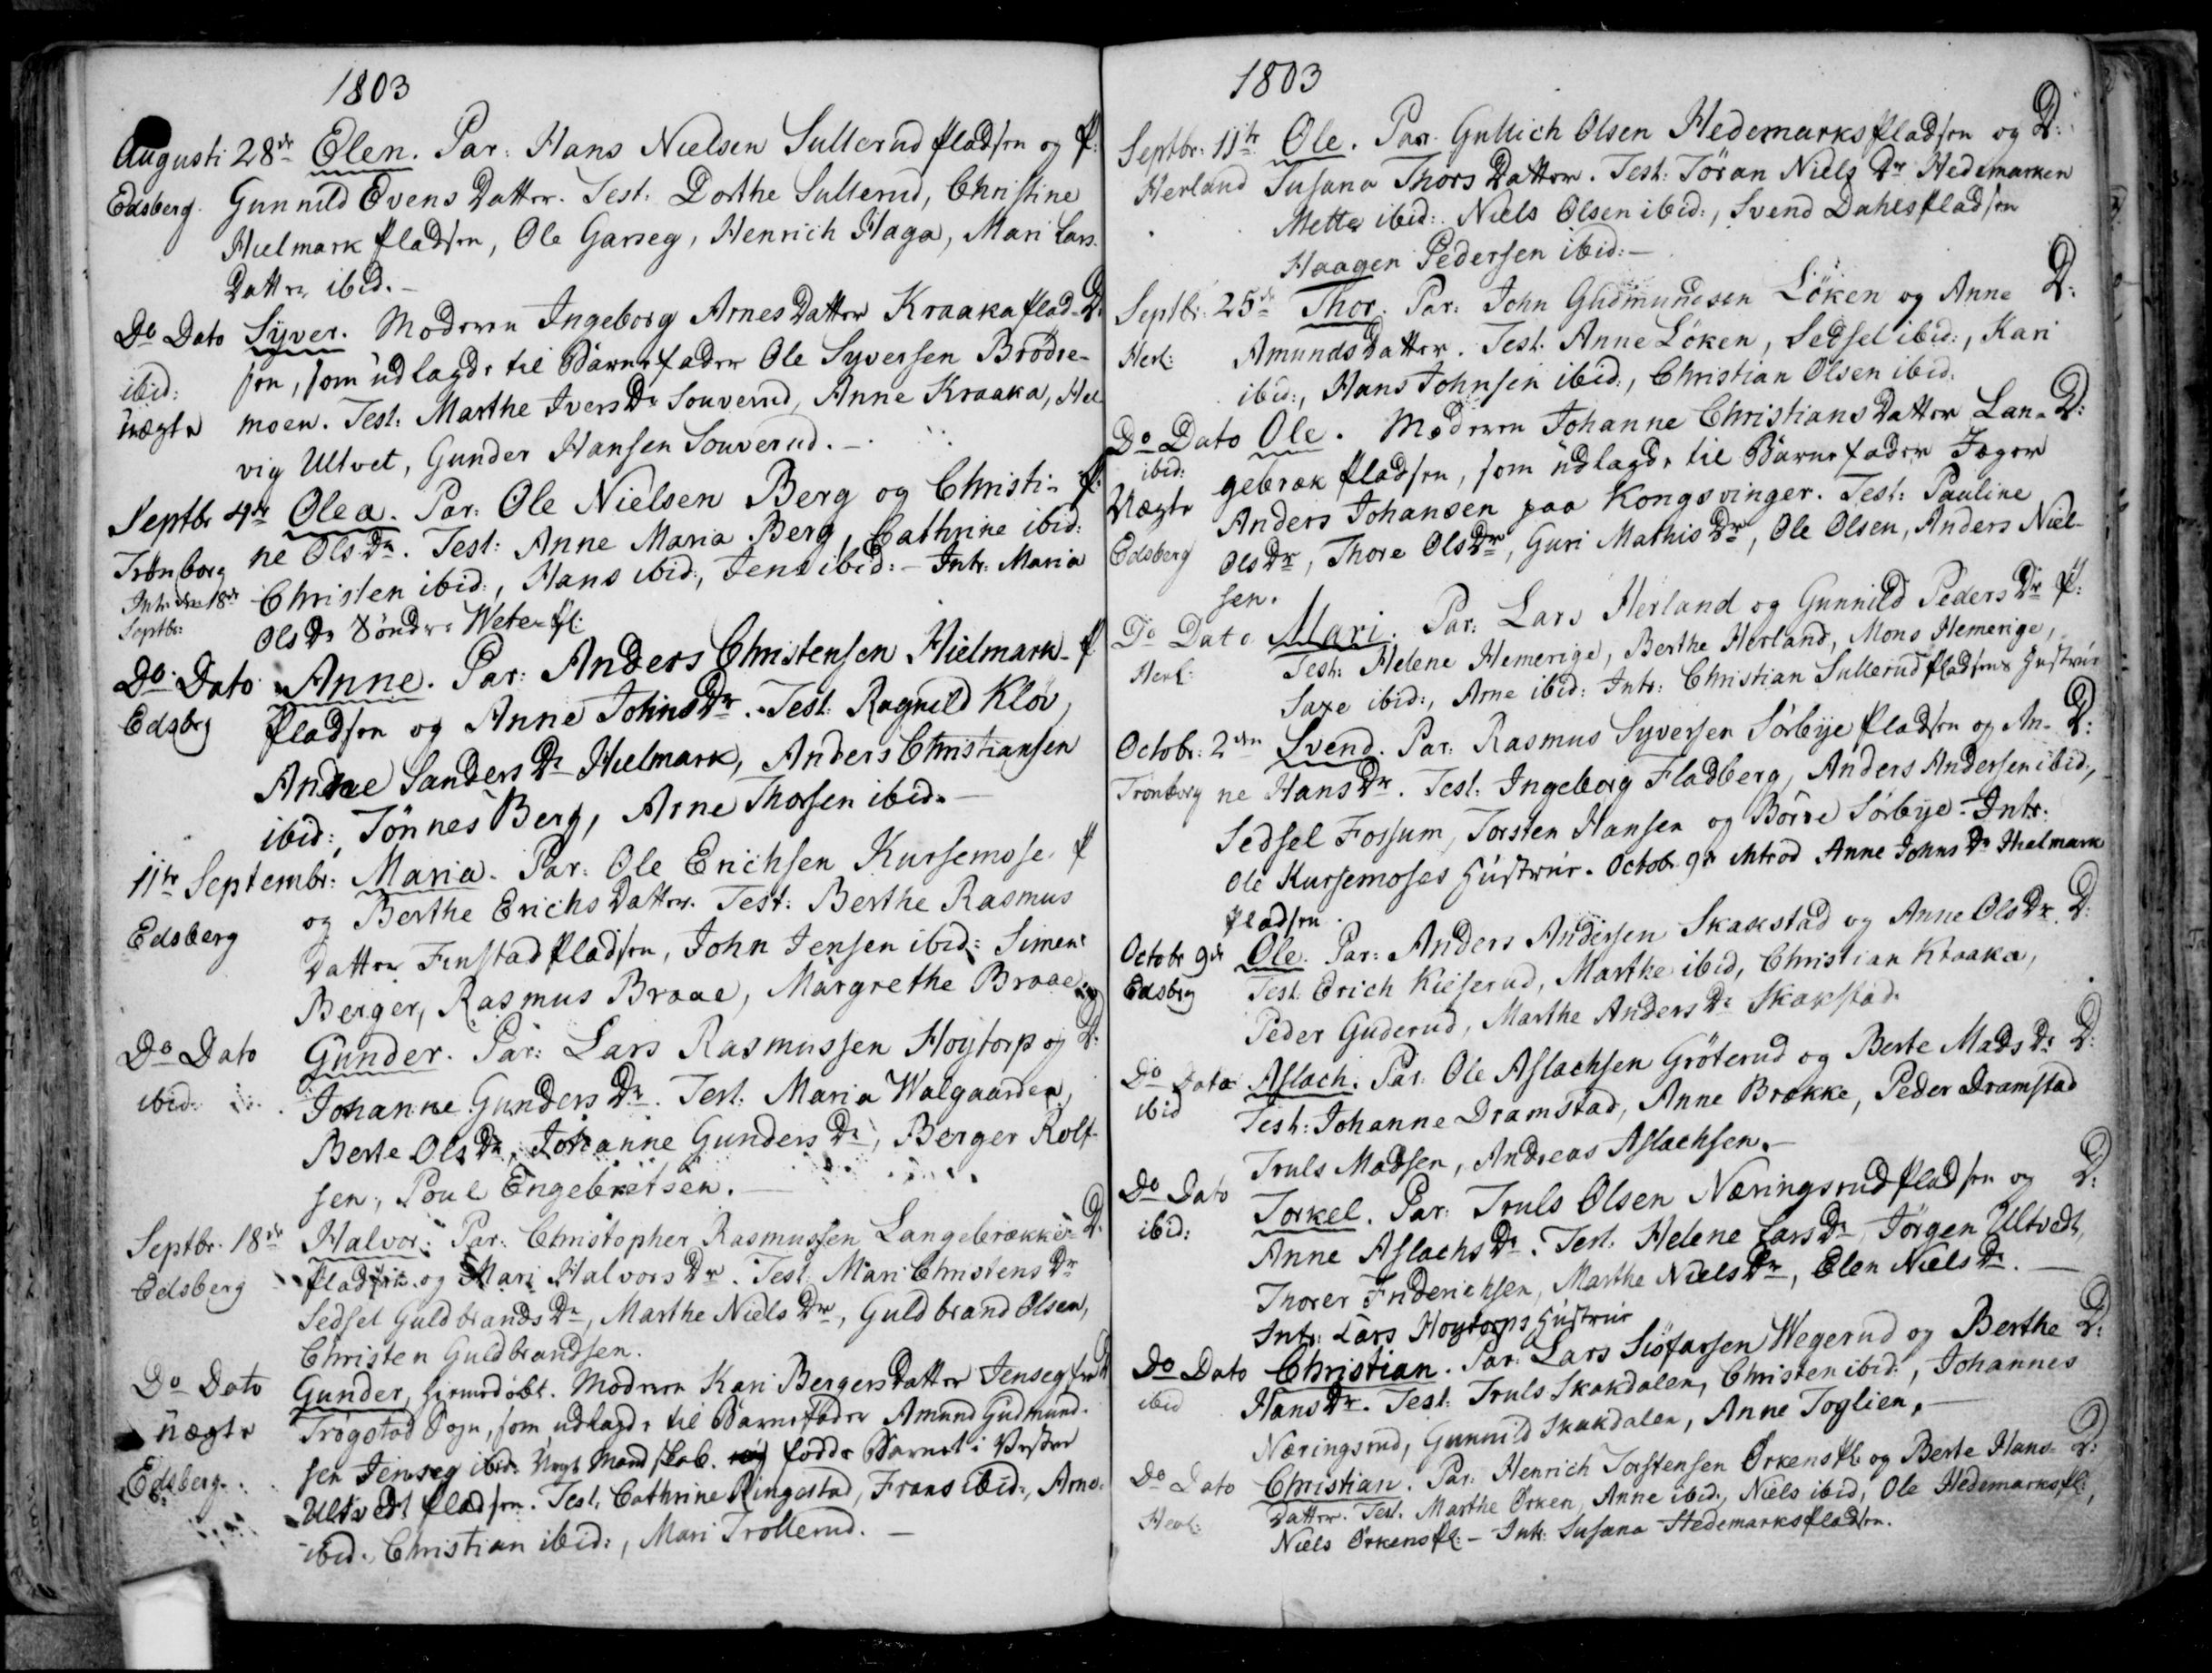 1803
Augusti 28de Elen. Par: Hans Nielsen Sullerudpladsen og P:
Edsberg. Gunnild Evens Datter. Test. Dorthe Sullerud, Christine
Hielmarkpladsen, Ole Garseg, Henrich Haga, Mari Lars
Datter ibid. -
Do Dato Syver. Moderen Ingeborg Arnes Datter Kraakaplad- D:
ibid: sen, som udlagde til Barnefader Ole Syversen Brödre-
uægte moen. Test: Marthe Ivers Dr Souverud, Anne Kraaka, Hel
vig Ultvet, Gunder Hansen Souverud. -
Septbr 4de Olea. Par: Ole Nielsen Berg og Christi- P:
Trönborg ne Ols Dr. Test: Anne Maria Berg, Cathrine ibid:
Intr: den 18de Christen ibid:, Hans ibid:, Jens ibid: - Intr: Maria
Septbr: Ols Dr Söndre Wete-pl:
Do Dato Anne. Par: Anders Christensen Hielmark- P
Edsberg pladsen og Anne Johns Dr. Test: Ragnild Klöv,
Andrae Sanders Dr Hielmark, Anders Christiansen
ibid:, Tönnes Berg, Arne Thorsen ibid. -
11te Septembr: Maria. Par: Ole Erichsen Kursemose P
Edsberg og Berthe Erichs Datter. Test: Berthe Rasmus
Datter Finstadpladsen, John Jensen ibid: Simen
Berger, Rasmus Braae, Margrethe Braae.
Do Dato Gunder. Par: Lars Rasmussen Hoytorp og D:
ibid: Johanne Gunders Dr. Test: Maria Walgaarden,
Berte Ols Dr, Johanne Gunders Dr, Berger Rolf-
sen, Poul Engebretsen. -
Septbr. 18de Halvor. Par: Christopher Rasmussen Langebrække- D.
Edsberg pladsen og Mari Halvors Dr. Test: Mari Christens Dr
Sedsel Guldbrands Dr, Marthe Niels Dr, Guldbrand Olsen,
Christen Guldbrandsen.
Do Dato Gunder, hiemedöbt. Moderen Kari Bergers Datter Jenseg fra D
uægte Trögstad Sogn, som udlagde til Barnefader Amund Gudmund-
Edsberg. sen Jenseg ibid: Nyt Mandskab. födde Barnet i Vester
Ultvedt pladsen. Test: Cathrine Ringestad, Frans ibid:, Arne
ibid: Christian ibid:, Mari Trollerud. -
1803
Septbr: 11te Ole. Par Gullich Olsen Hedemarkspladsen og D:
Herland Susana Thors Datter. Test: Jöran Niels Dr Hedemarken
Mette ibid:. Niels Olsen ibid:, Svend Dahlspladsen
Haagen Pedersen ibid: -
Septbr: 25de Thor. Par: John Gudmundsen Löken og Anne D:
Herl: Amunds Datter. Test: Anne Löken, Sedsel ibid:, Kari
ibid:, Hans Johnsen ibid:, Christian Olsen ibid.
Do Dato Ole. Moderen Johanne Christians Datter Lan- D:
ibid: gebræk pladsen, som udlagde til Barnefader Jæger
Uægte Anders Johansen paa Kongsvinger. Test: Pauline
Edsberg Ols Dr, Thore Ols Dr, Guri Mathis Dr, Ole Olsen, Anders Niel-
sen.
Do Dato Mari. Par: Lars Herland og Gunnild Peders Dr P:
Herl: Test: Helene Hemerige, Berthe Herland, Mons Hemerige,
Saxe ibid:, Arne ibid: Intr: Christian Sullerudpladsens Hustrue
Octobr: 2den Svend. Par: Rasmus Syversen Sörbye pladsen og An- D:
Trönborg ne Hans Dr. Test: Ingeborg Fladberg, Anders Andersen ibid:,
Sedsel Fossum, Torsten Hansen og Börre Sörbye - Intr:
Ole Kursemoses Hustrue. Octobr 9de introd Anne Johns Dr Hielmark
pladsen.
Octobr 9de Ole. Par: Anders Andersen Skakstad og Anne Ols Dr D:
Edsberg Test: Erich Kieserud, Marthe ibid, Christian Kraaka,
Peder Guderud, Marthe Anders Dr Skakstad.
Do Dato Aslach. Par: Ole Aslachsen Gröterud og Berte Mads Dr D:
ibid Test: Johanne Dramstad, Anne Brække, Peder Dramstad
Truls Madsen, Andreas Aslachsen. -
Do Dato Torkel. Par: Truls Olsen Næringsrudpladsen og D:
ibid: Anne Aslachs Dr. Test. Helene Lars Dr, Jörgen Ultvedt,
Thorer Friderichsen, Marthe Niels Dr, Elen Niels Dr. -
Intr: Lars Hoytorps Hustrue
Do Dato Christian. Par: Lars Siöfarsen Wegerud og Berthe D:
ibid Hans Dr. Test: Truls Skakdalen, Christen ibid:, Johannes
Næringsrud, Gunnild Skakdalen, Anne Toglien, -
Do Dato Christian. Par: Henrich Torstensen Örkenspl: og Berte Hans- D:
Herl: Datter. Test. Marthe Örken, Anne ibid., Niels ibid, Ole Hedemarkspl:,
Niels Örkenspl: - Intr: Susana Hedemarkspladsen.